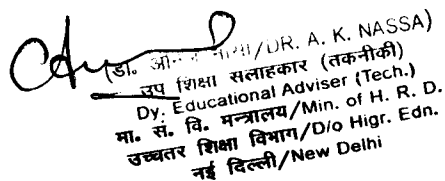 (डा. नासा/DR. A. K. NASSA)
उप शिक्षा सलाहकार (तकनीकी)
Dy. Educational Adviser (Tech.)
मा. सं. वि. मन्त्रालय/Min. of H. R. D.
उच्चतर शिक्षा विभाग/D/o Higr. Edn.
नई दिल्ली/New Delhi